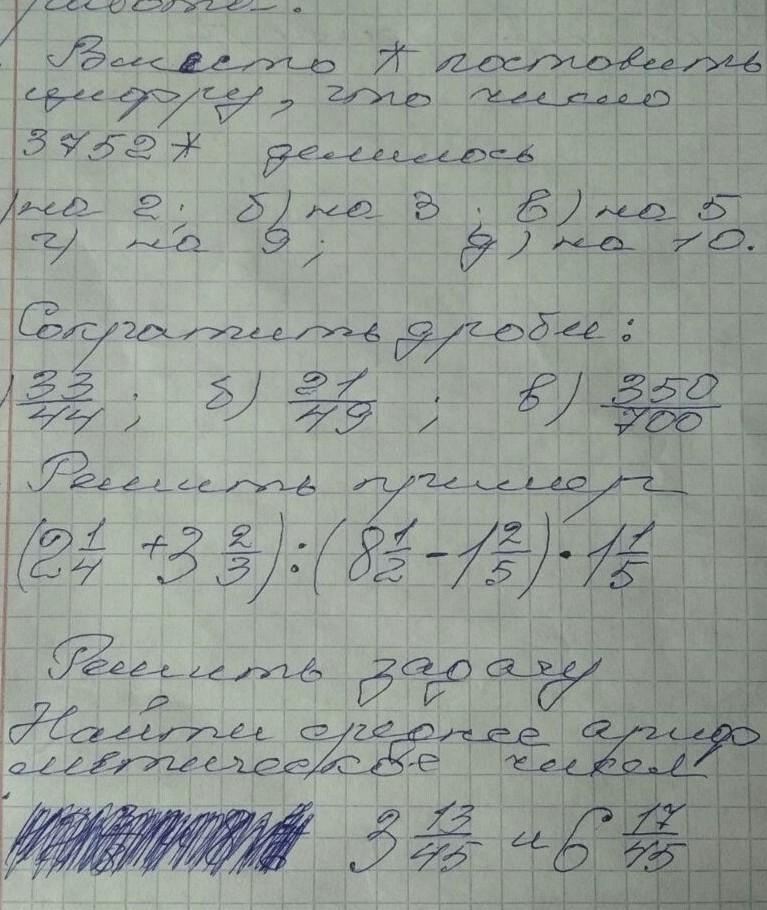 Вместо * постовить
цифру, что число
3752* делилось
) на 2; б) на 3; в) на 5
г) на 9; д) на 10.
Сократить дроби:
) 33/44; б) 21/49; в) 350/700
Решить пример
(2 1/4 + 3 2/3) : (8 1/2 - 1 2/5) · 1 1/5
Решить задачу
Найти среднее арифо
метическое чисел
3 13/45 и 6 17/45